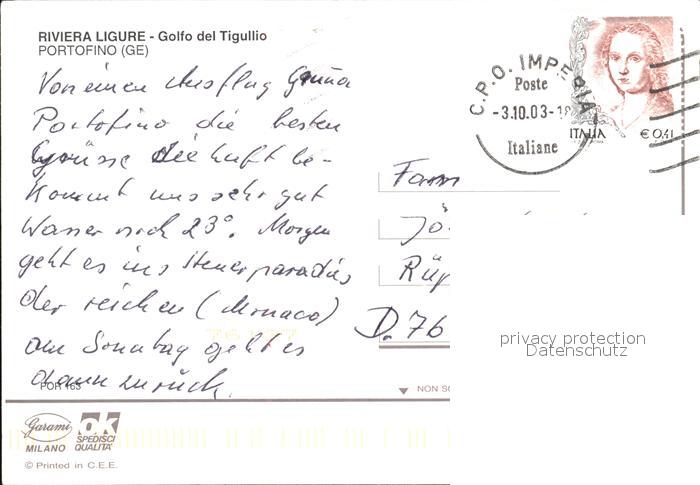 RIVIERA LIGURE - Golfo del Tigullio
PORTOFINO (GE)
Von einen Ausflug
Portofino die besten
Grüsse die Luft be-
kommt uns sehr gut
Wasser noch 23°. Morgen
geht es ins Steuerparadies
der reichen (Monaco)
am Sonntag geht es
dann zurück.
POR 163
Garami
MILANO
ok
SPEDISCI
QUALITA'
© Printed in C.E.E.
C.P.O. IMPERIA
Poste
-3.10.03-18
Italiane
ITALIA € 0,41
Fam
Jö
Rüp
D. 76
76 177
NON SC
privacy protection
Datenschutz